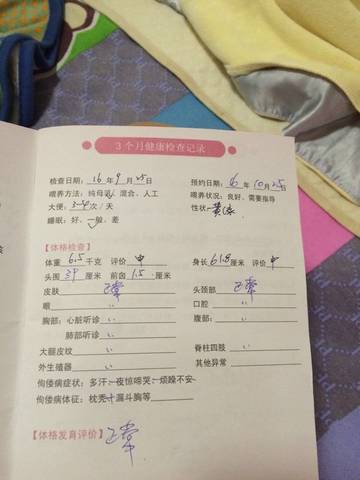 3个月健康检查记录
检查日期：16年9月25日 预约日期：16年10月25日
喂养方法：纯母乳、混合、人工 喂养状况：良好、需要指导
大便：3-4次/天 性状：黄绿
睡眠：好、一般、差
【体格检查】
体重 6.5 千克 评价 中 身长 61.8 厘米 评价 中
头围 39 厘米 前囟 1.5 厘米
皮肤 正常 头颈部 正常
眼 〃 口腔 〃
胸部：心脏听诊 〃 腹部： 〃
肺部听诊 〃
大腿皮纹 〃 脊柱四肢 〃
外生殖器 〃 其他异常
佝偻病症状：多汗、夜惊啼哭、烦躁不安
佝偻病体征：枕秃 漏斗胸等
【体格发育评价】正常